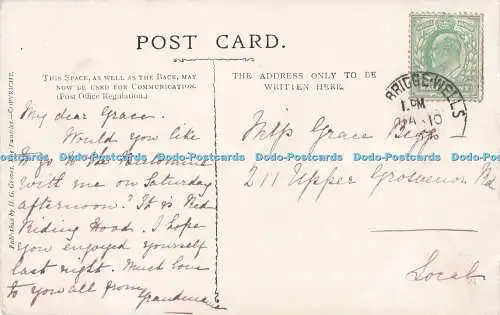 POST CARD.
THIS SPACE, AS WELL AS THE BACK, MAY
NOW BE USED FOR COMMUNICATION.
(Post Office Regulation.)
THE ADDRESS ONLY TO BE
WRITTEN HERE.
My dear Grace.
Would you like
to go to the
with me on Saturday
afternoon? It is Red
Riding Hood. I hope
you enjoyed yourself
last night. Much love
to you all from Grandma
Miss Grace
211 Upper Grosvenor Rd
Local
BRIDGE-WELLS
1. PM
10
Dodo-Postcards Dodo-Postcards Dodo-Postcards Dodo-Postcards Dodo-Postcards
COPYRIGHT.
Published by H. G.